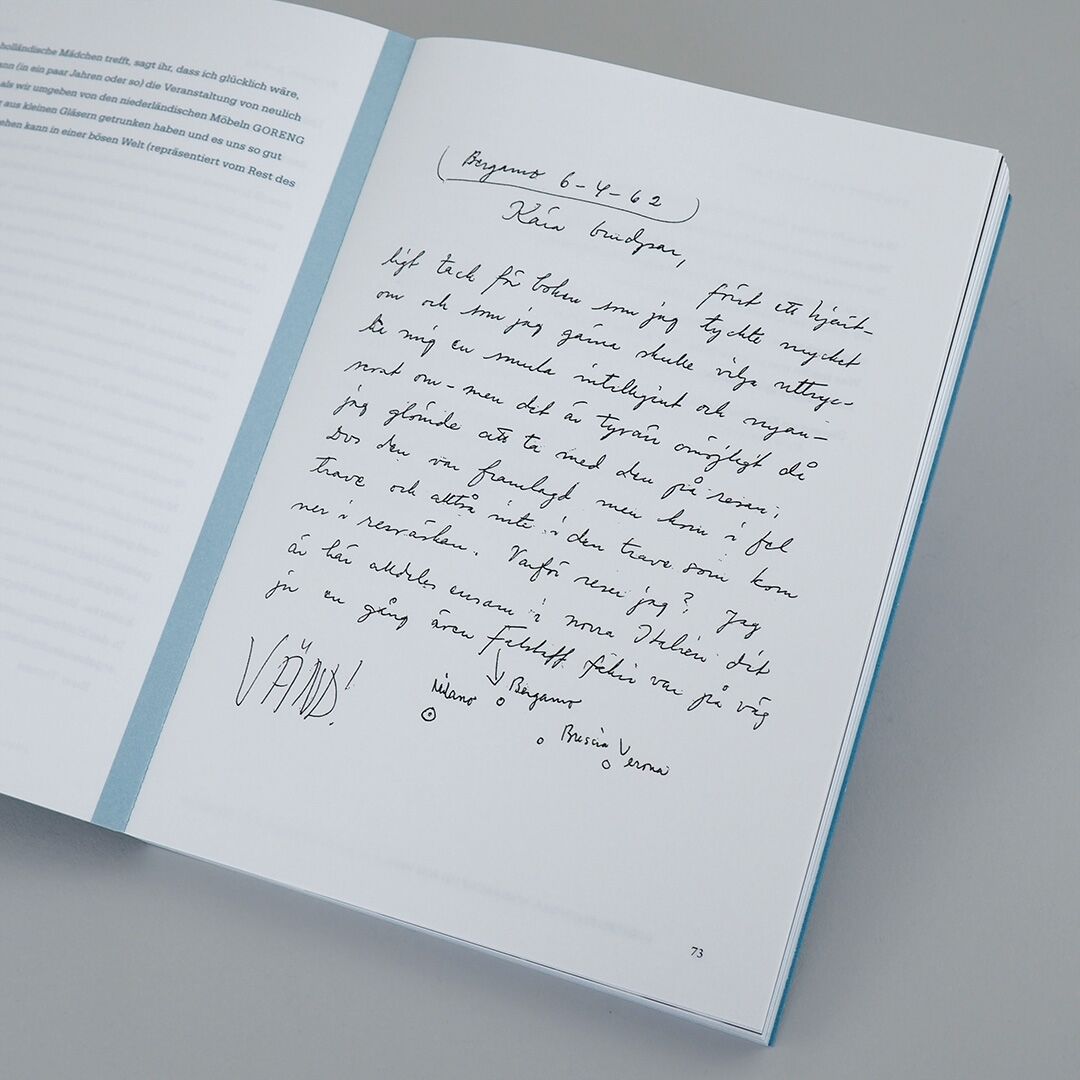 holländische Mädchen trifft, sagt ihr, dass ich glücklich wäre,
ann (in ein paar Jahren oder so) die Veranstaltung von neulich
als wir umgeben von den niederländischen Möbeln GORENG
aus kleinen Gläsern getrunken haben und es uns so gut
ehen kann in einer bösen Welt (repräsentiert vom Rest des
Bergamo 6-4-62
Kära brudpar,
först ett hjärt-
ligt tack för boken som jag tyckte mycket
om och som jag gärna skulle vilja uttryc-
ka mig en smula intelligent och nyan-
serat om - men det är tyvärr omöjligt då
jag glömde att ta med den på resan;
Dvs den var framlagd men kom i fel
trave och alltså inte i den trave som kom
ner i resväskan. Varför reser jag? Jag
är här alldeles ensam i norra Italien dit
ju en gång även Falstaff fakir var på väg
VÄND!
Milano
Bergamo
Brescia
Verona
73